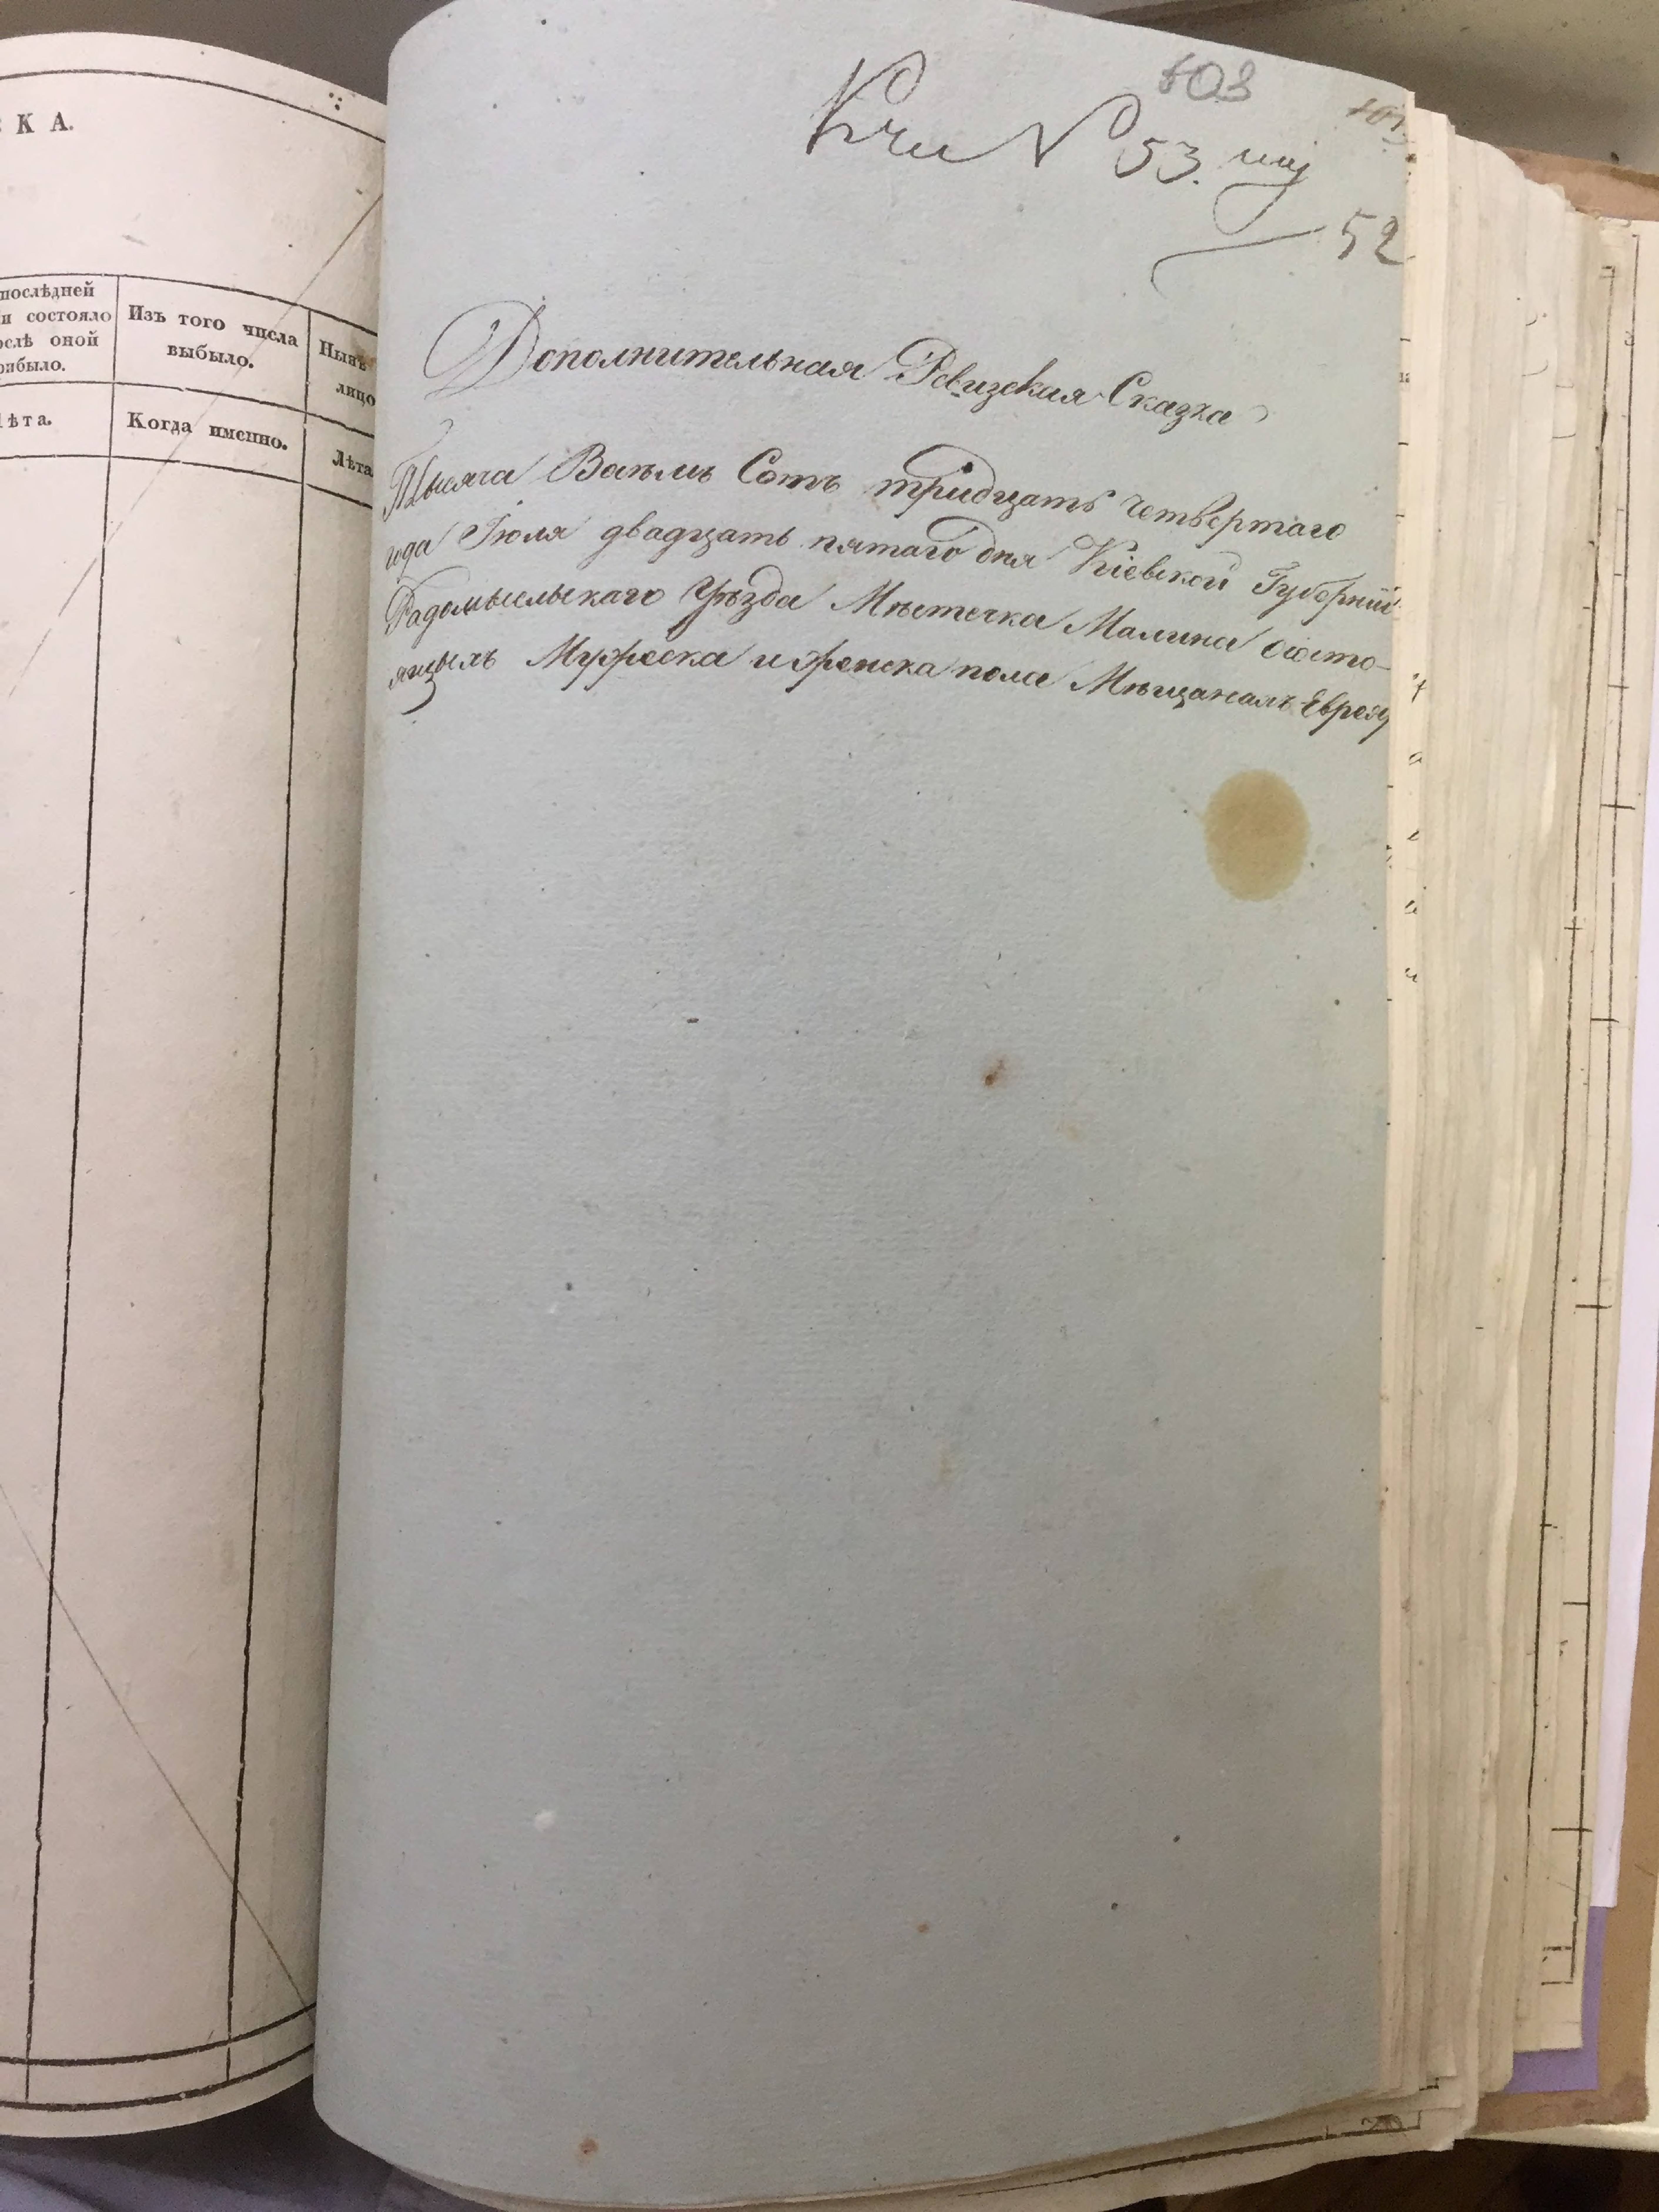 К А.
послѣдней
и состояло
ослѣ оной
рибыло.
Изъ того числа
выбыло.
Нынѣ
лицо
лѣта.
Когда именно.
Лѣта
803
К № 53.
52
Дополнительная Ревизская Сказка
Тысяча Васѣмъ Сотъ тридцать четвертаго
года Іюля двадцать пятаго дня Кіевской Губерніи
Радомысльскаго Уѣзда Мѣстечка Малина состо-
ящымъ Мужеска и женска пола Мѣщанамъ Еврея